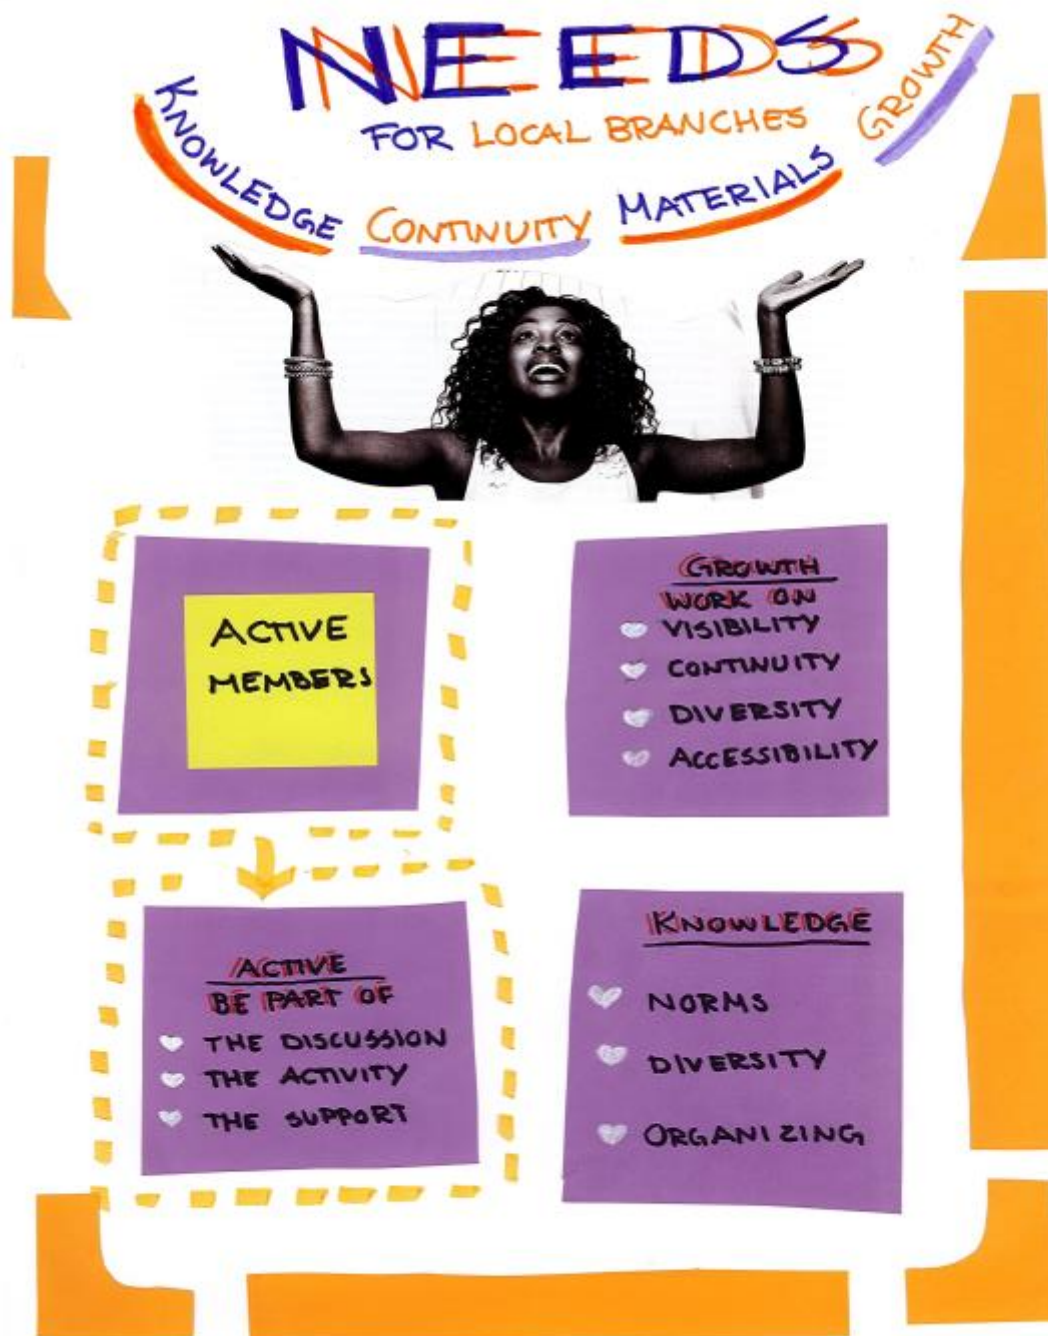 NEEDS
FOR LOCAL BRANCHES
KNOWLEDGE
CONTINUITY
MATERIALS
GROWTH
ACTIVE
MEMBERS
GROWTH
WORK ON
VISIBILITY
CONTINUITY
DIVERSITY
ACCESSIBILITY
ACTIVE
BE PART OF
THE DISCUSSION
THE ACTIVITY
THE SUPPORT
KNOWLEDGE
NORMS
DIVERSITY
ORGANIZING